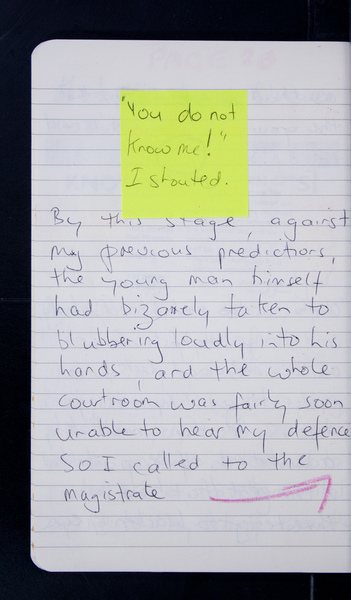 "You do not
know me!"
I shouted.
By this stage, against
my previous predictions,
the young man himself
had bizarrely taken to
blubbering loudly into his
hands, and the whole
courtroom was fairly soon
unable to hear my defence
So I called to the
magistrate